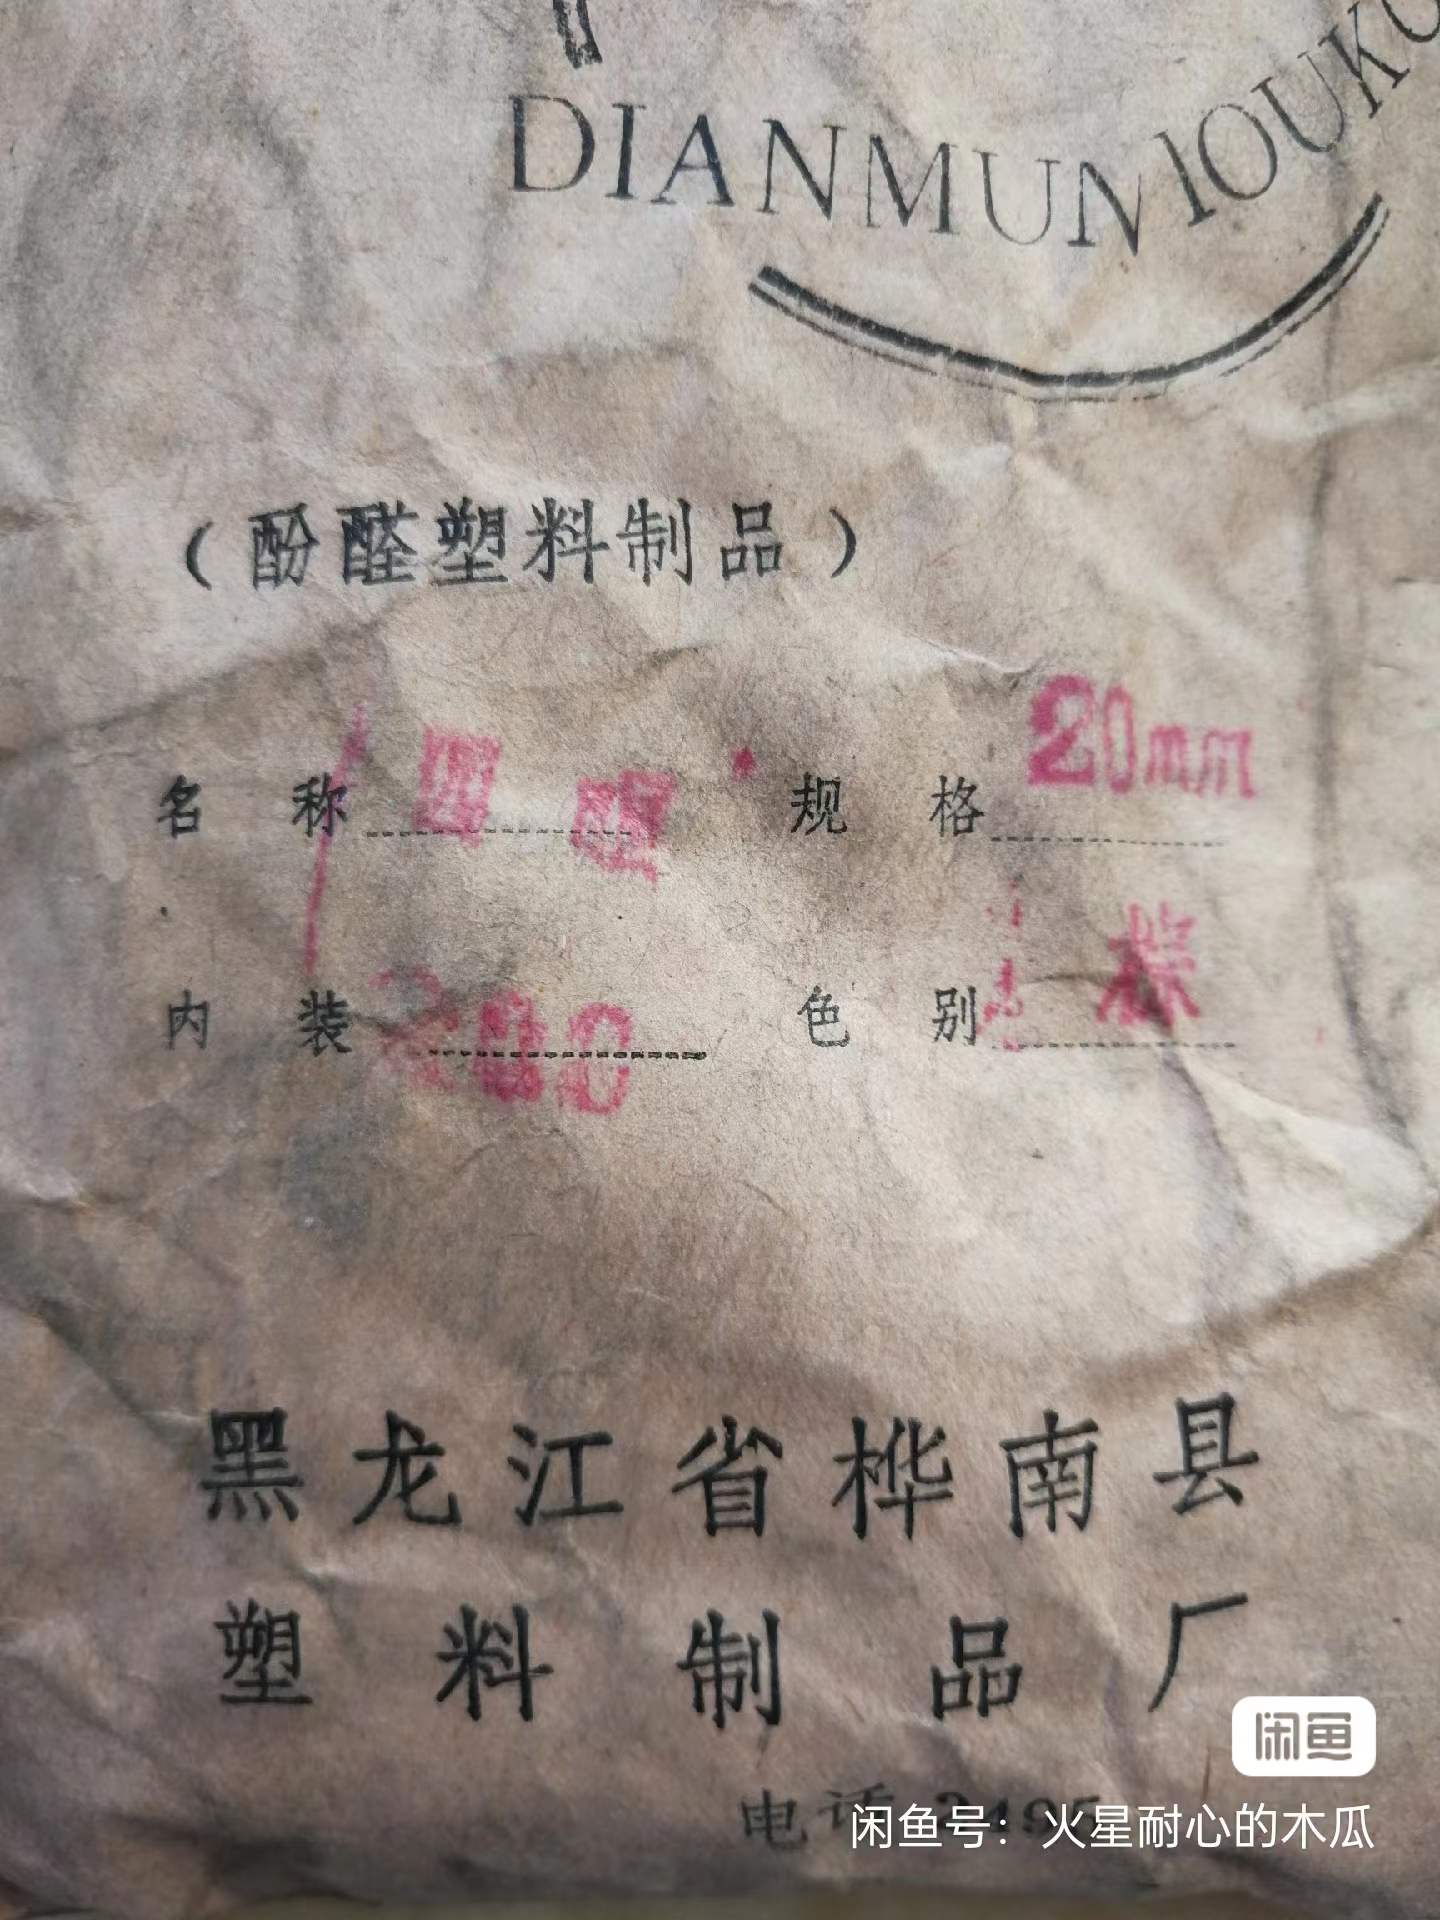 DIANMUNIOUKO
（酚醛塑料制品）
名称 四眼 规格 20mm
内装 200 色别 棕
黑龙江省桦南县
塑料制品厂
闲鱼
电话 2495
闲鱼号：火星耐心的木瓜